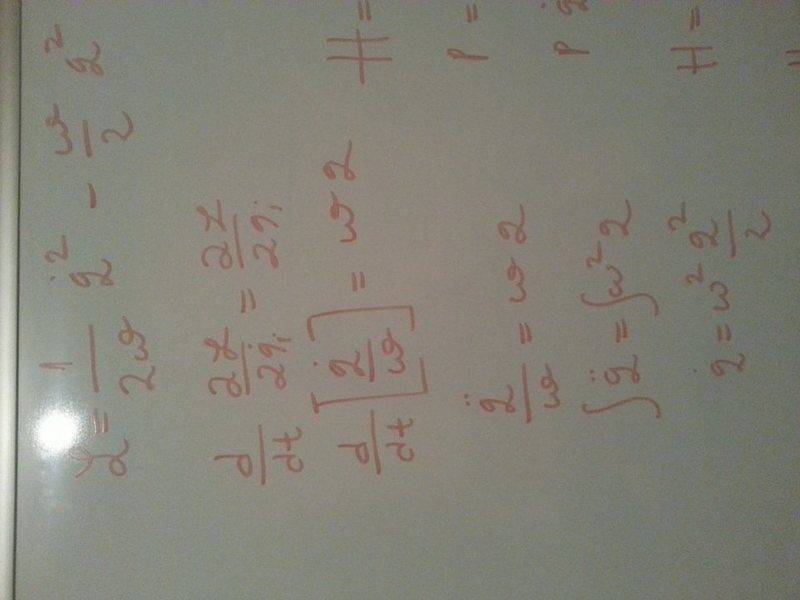 ℒ = 1/2ω q̇² - ω/2 q²
d/dt ∂ℒ/∂q̇ᵢ = ∂ℒ/∂qᵢ
d/dt [q̇/ω] = ω q H =
P =
q̈/ω = ω q
P q̇
∫ q̈ = ∫ ω² q
H =
q̇ = ω² q²/2